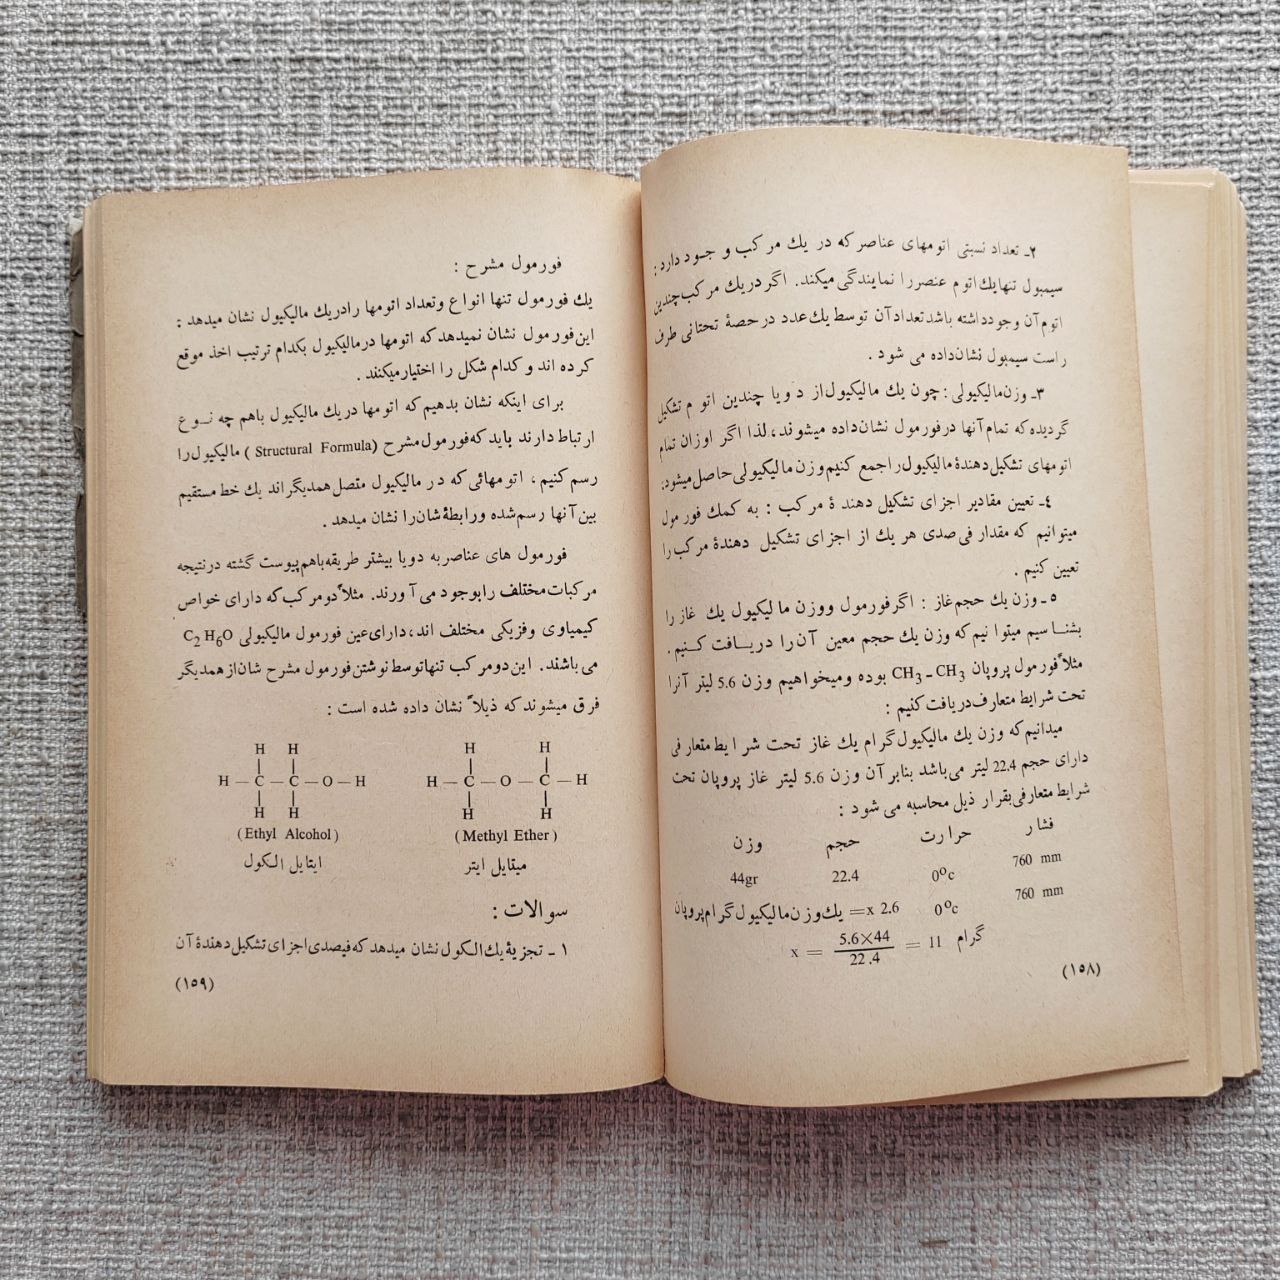 ۲ـ تعداد نسبتی اتومهای عناصر که در یك مرکب و جود دارد :
سیمبول تنها یك اتوم عنصر را نمایندگی میکند. اگر در یك مرکب چندین
اتوم آن وجود داشته باشد تعداد آن توسط یك عدد در حصۀ تحتانی طرف
راست سیمبول نشان داده می شود .
۳ـ وزن مالیکیولی : چون یك مالیکیول از دو یا چندین اتوم تشکیل
گردیده که تمام آنها در فورمول نشان داده میشوند، لذا اگر اوزان تمام
اتومهای تشکیل دهندۀ مالیکیول را جمع کنیم وزن مالیکیولی حاصل میشود.
٤ـ تعیین مقادیر اجزای تشکیل دهندۀ مرکب : به کمك فورمول
میتوانیم که مقدار فی صدی هر یك از اجزای تشکیل دهندۀ مرکب را
تعیین کنیم .
٥ـ وزن یك حجم غاز : اگر فورمول ووزن مالیکیول یك غاز را
بشناسیم میتوانیم که وزن یك حجم معین آن را دریافت کنیم .
مثلاً فورمول پروپان CH3 ـ CH3 بوده ومیخواهیم وزن 5.6 لیتر آنرا
تحت شرایط متعارف دریافت کنیم :
میدانیم که وزن یك مالیکیول گرام یك غاز تحت شرایط متعارفی
دارای حجم 22.4 لیتر می باشد بنابر آن وزن 5.6 لیتر غاز پروپان تحت
شرایط متعارفی بقرار ذیل محاسبه می شود :
فشار حرارت حجم وزن
760 mm 0°c 22.4 44gr
760 mm 0°c x 2.6 = یك وزن مالیکیول گرام پروپان
x = 5.6×44 / 22.4 = 11 گرام
(١٥٨)
فورمول مشرح :
یك فورمول تنها انواع وتعداد اتومها را در یك مالیکیول نشان میدهد :
این فورمول نشان نمیدهد که اتومها در مالیکیول بکدام ترتیب اخذ موقع
کرده اند و کدام شکل را اختیار میکنند .
برای اینکه نشان بدهیم که اتومها در یك مالیکیول باهم چه نوع
ارتباط دارند باید که فورمول مشرح (Structural Formula) مالیکیول را
رسم کنیم ، اتومهائی که در مالیکیول متصل همدیگر اند یك خط مستقیم
بین آنها رسم شده ورابطۀ شان را نشان میدهد .
فورمول های عناصر به دو یا بیشتر طریقه باهم پیوست گشته در نتیجه
مرکبات مختلف را بوجود می آورند. مثلاً دو مرکب که دارای خواص
کیمیاوی وفزیکی مختلف اند، دارای عین فورمول مالیکیولی C2H6O
می باشند. این دو مرکب تنها توسط نوشتن فورمول مشرح شان از همدیگر
فرق میشوند که ذیلاً نشان داده شده است :
H H H H
H — C — C — O — H H — C — O — C — H
H H H H
(Ethyl Alcohol) (Methyl Ether)
ایتایل الکول میتایل ایتر
سوالات :
۱ ـ تجزیۀ یك الکول نشان میدهد که فیصدی اجزای تشکیل دهندۀ آن
(١٥٩)